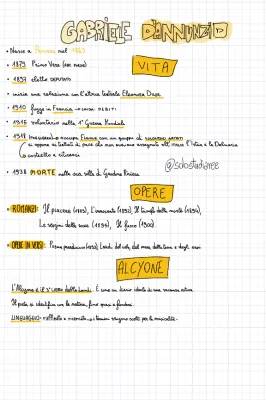 GABRIELE D'ANNUNZIO
• Nasce a Pescara nel 1863
VITA
• 1879 Primo Vere
• 1897 eletto DEPUTATO
• inizia una relazione con l'attrice teatrale Eleonora Duse
• 1910 fugge in Francia → DEBITI
• 1915 volontario nella 1ª Guerra Mondiale
• 1919 occupa Fiume con un gruppo di
si oppone ai trattati di pace che non avevano assegnato all' Italia l'Istria e la Dalmazia
costretto a ritirarsi
@sobstudiares
• 1938 MORTE nella sua villa di Gardone Riviera
OPERE
• ROMANZI: Il piacere (1889), L'innocente (1892), Il trionfo della morte (1894),
Le vergini delle rocce (1895), Il fuoco (1900)
• OPERE IN VERSI: Poema paradisiaco (1893) Laudi del cielo, del mare, della terra e degli eroi
ALCYONE
L'Alcyone è il 3° LIBRO delle Laudi. È come un diario ideale di una vacanza estiva
Il poeta si identifica con la natura, fino quasi a fondersi
LINGUAGGIO: raffinato e ricercato → i termini vengono scelti per la musicalità